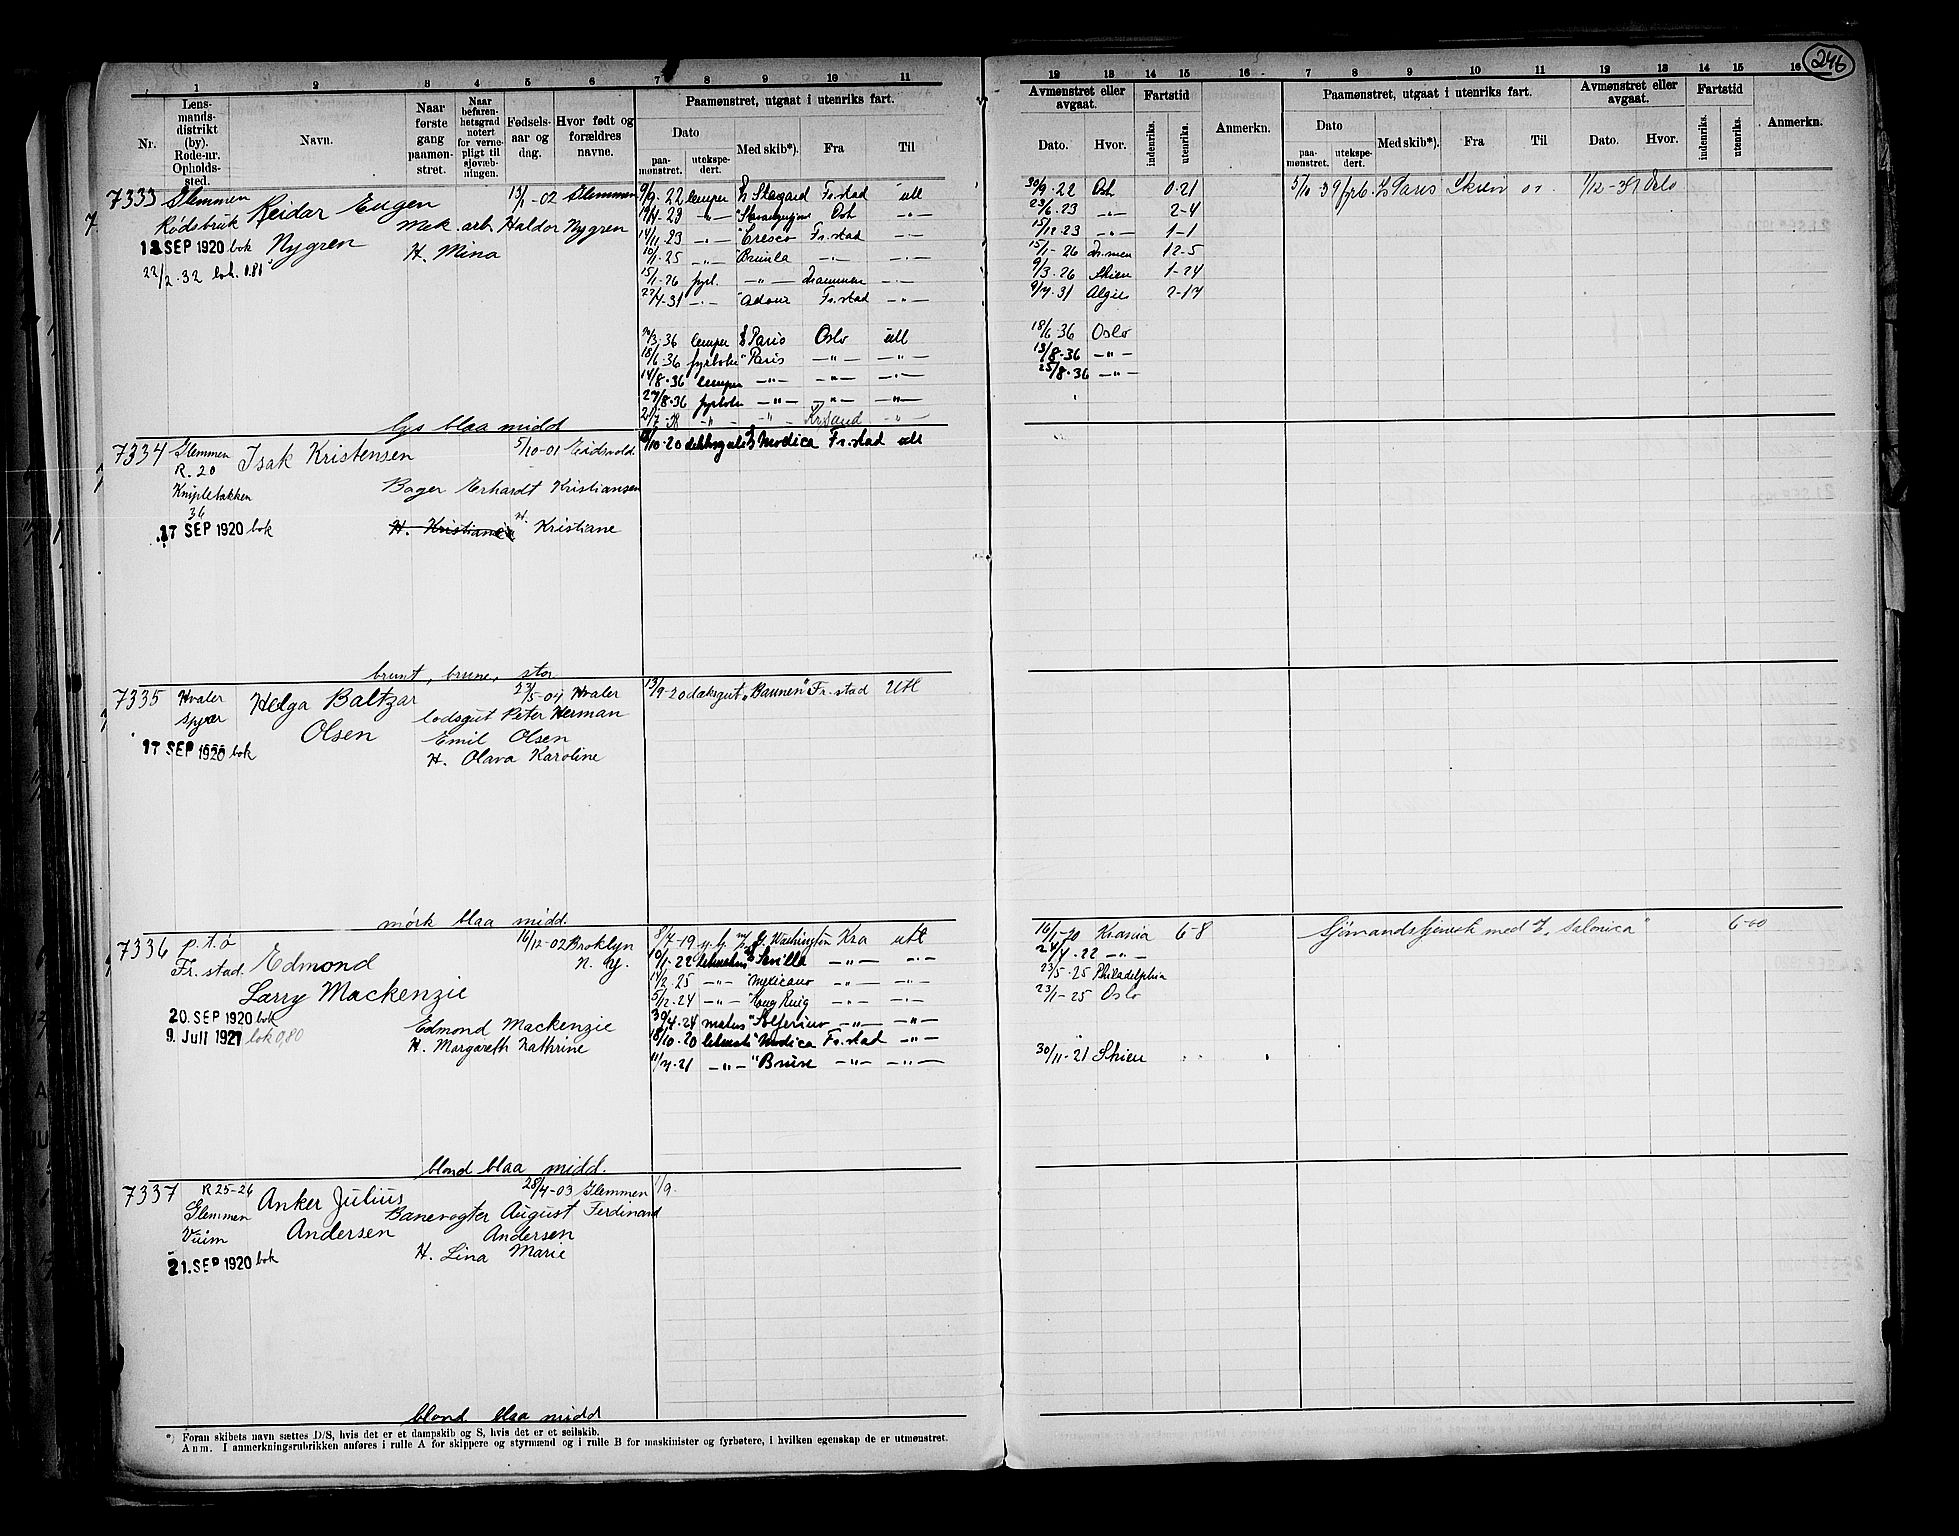 246
1 2 3 4 5 6 7 8 9 10 11
Nr. Lensmandsdistrikt (by). Rode-nr. Opholdssted. Navn. Naar første gang paamønstret. Naar befarenhetsgrad notert for vernepligt til sjøvæbningen. Fødselsaar og dag. Hvor født og forældres navne.
Paamønstret, utgaat i utenriks fart.
Dato paamønstret. utekspedert. Med skib*). Fra Til
12 13 14 15 16 7 8 9 10 11 12 13 14 15 16
Avmønstret eller avgaat. Dato. Hvor. Fartstid indenriks. utenriks. Anmerkn.
Paamønstret, utgaat i utenriks fart.
Dato paamønstret. utekspedert. Med skib*). Fra Til
Avmønstret eller avgaat. Dato. Hvor. Fartstid indenriks. utenriks. Anmerkn.
7333 Glemmen Reidar Eugen 13/1-02 Glemmen
Rødsbruk Nygren Mek. arb. Haldor Nygren
SEP 1920 bok H. Mina
22/2-32 bok. 0.80
9/9-22 lemper Fr.stad utl
-23 -"- Osl -"-
14/11-23 -"- "Cresco Fr.stad -"-
10/1-25 -"- "Brumla -"- -"-
15/1-26 fyrb. -"- Drammen -"-
27/4-31 -"- "Adour Fr.stad -"-
/3-36 lemper Paris Oslo utl
18/6-36 fyrbøter "Paris -"- -"-
14/8-36 lemper -"- -"- -"-
27/8-36 fyrbøter -"- -"- -"-
-"- -"- Kr.sand -"-
30/9-22 Osl 0-21
23/6-23 -"- 2-4
15/12-23 -"- 1-1
15/1-26 Dr.men 12-5
9/3-26 Skien 1-24
9/7-31 Algier 2-17
18/6-36 Oslo
13/8-36 -"-
25/8-36 -"-
5/11-39 fyrb. Paris Skien 1/12-39 Oslo
lys blaa midd
7334 Glemmen Isak Kristensen 5/10-01 Eidsvold
R. 20
Kniplebakken Bager Erhardt Kristiansen
36
17 SEP 1920 bok H. Kristiane
/10-20 Modica Fr.stad utl
brunt, brune, stor
7335 Hvaler Helga Baltzar 23/5-04 Hvaler
Spjær Olsen lodsgut Peter Herman
17 SEP 1920 bok Emil Olsen
H. Olava Karoline
13/9-20 dæksgut "Baunen" Fr.stad Utl
mørk blaa midd.
7336 p.t.ø Edmond 16/12-02 Broklyn
Fr.stad. Larry Mackenzie N. Y.
20. SEP 1920 bok Edmond Mackenzie
9. Juli 1921 bok 0,80 H. Margareth Kathrine
8/7-19 G. Washington Kra utl
10/1-22 Sevilla -"- -"-
/2-25 -"- "Mexicano -"- -"-
5/2-24 -"- -"- -"-
30/4-24 matros "Solferino -"- -"-
18/10-20 "Modica Fr.stad -"-
11/7-21 -"- "Bruse -"- -"-
16/1-20 Krania 6-8
24/7-22 -"-
23/5-25 Philadelphia
23/1-25 Oslo
30/11-21 Skien
Sjømandstjeneste med "Salonica" 6-00
blond blaa midd.
7337 R 25-26 Anker Julius 28/4-03 Glemmen 1/9.
Glemmen Andersen Banevogter August Ferdinand
Vuim Andersen
21. SEP 1920 bok H. Lina Marie
blond blaa midd
*) Foran skibets navn sættes D/S, hvis det er et dampskib og S, hvis det er et seilskib.
Anm. I anmerkningsrubrikken anføres i rulle A for skippere og styrmænd og i rulle B for maskinister og fyrbøtere, i hvilken egenskap de er utmønstret.